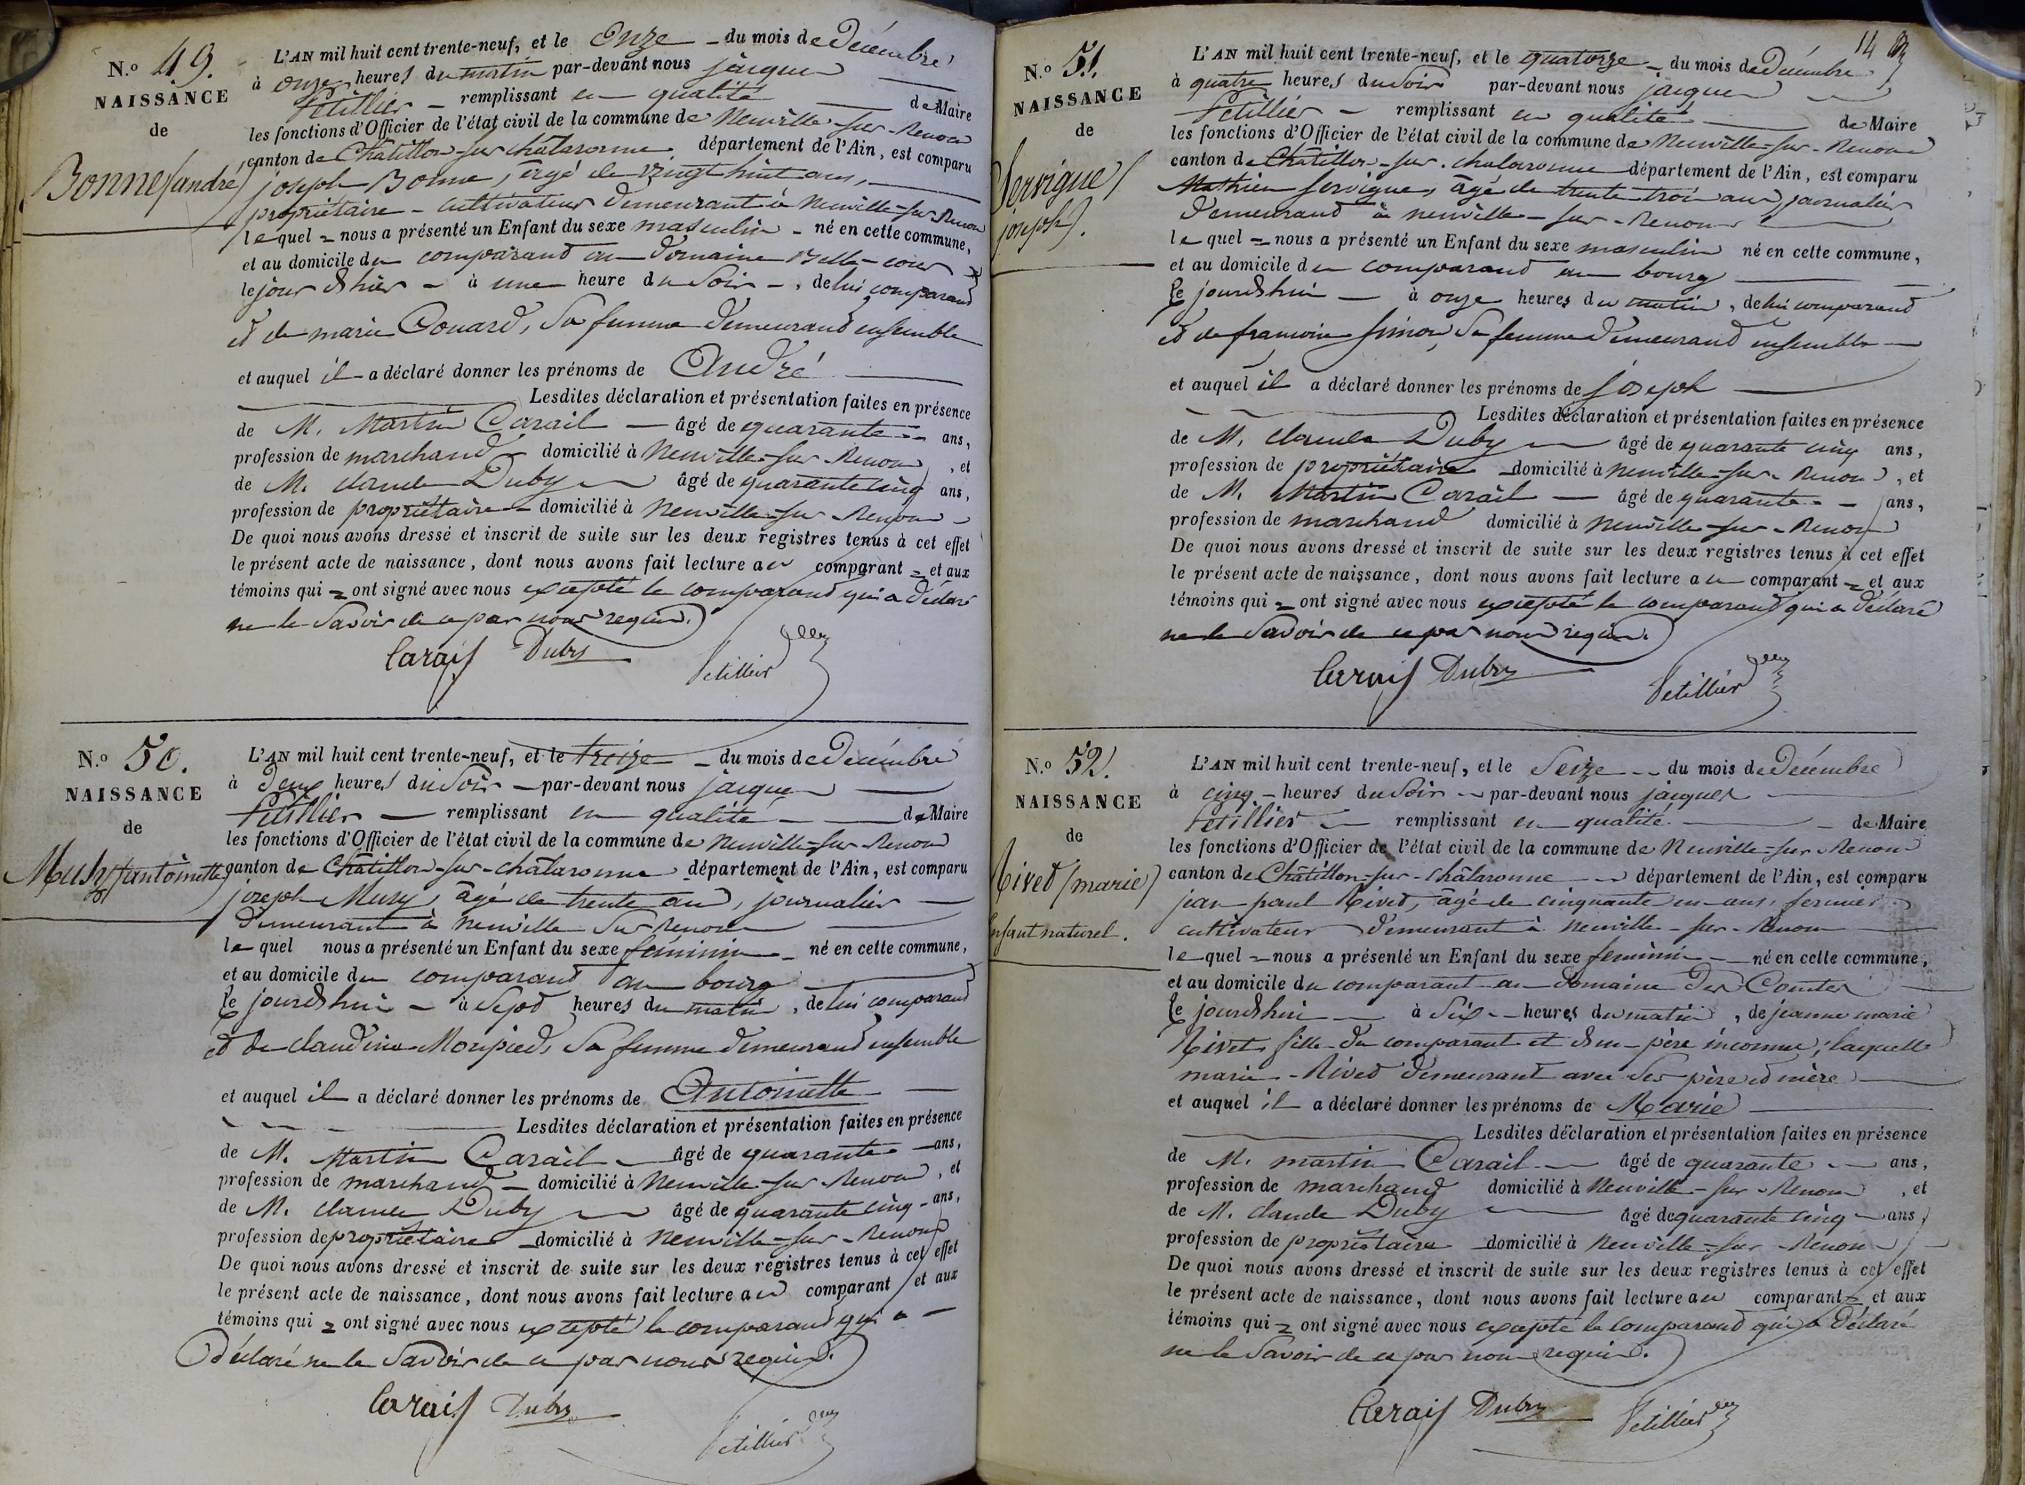 N.o 49.
NAISSANCE
de
Bonne (andré)
L'AN mil huit cent trente-neuf, et le onze - du mois de décembre
à onze heures du matin par-devant nous jacques
Petillier - remplissant en qualité de Maire
les fonctions d'Officier de l'état civil de la commune de Neuville-sur-Renom
canton de Châtillon sur chalaronne département de l'Ain, est comparu
joseph Bonne, âgé de vingt huit ans,
propriétaire - cultivateur demeurant à Neuville-sur-Renom
le quel = nous a présenté un Enfant du sexe masculin - né en cette commune,
et au domicile du comparand au domaine Belle-cour
le jour d'hier - à une heure du soir -, de lui comparand
et de marie Couard, sa femme demeurand ensemble
et auquel il - a déclaré donner les prénoms de André
Lesdites déclaration et présentation faites en présence
de M. Martin Carail - âgé de quarante - ans,
profession de marchand domicilié à Neuville-sur Renom, et
de M. claude Duby âgé de quarante cinq ans,
profession de propriétaire - domicilié à Neuville-sur-Renom
De quoi nous avons dressé et inscrit de suite sur les deux registres tenus à cet effet
le présent acte de naissance, dont nous avons fait lecture au comparant = et aux
témoins qui = ont signé avec nous excepté le comparand qui a déclaré
ne le savoir de ce par nous requis.
Carail Duby Petillier
N.o 50.
NAISSANCE
de
Mury (antoinette)
L'AN mil huit cent trente-neuf, et le treize - du mois de Décembre
à deux heures du soir - par-devant nous jacques
Petillier - remplissant en qualité - de Maire
les fonctions d'Officier de l'état civil de la commune de Neuville-sur-Renom
canton de Châtillon-sur-châlaronne département de l'Ain, est comparu
joseph Mury, âgé de trente ans, journalier -
demeurant à Neuville sur Renom
le quel nous a présenté un Enfant du sexe féminin - né en cette commune,
et au domicile du comparand au bourg
le jourd'hui - à sept heures du matin, de lui comparand
et de claudine Monpied, sa femme demeurand ensemble
et auquel il - a déclaré donner les prénoms de Antoinette
Lesdites déclaration et présentation faites en présence
de M. Martin Carail - âgé de quarante - ans,
profession de marchand - domicilié à Neuville-sur Renom, et
de M. claude Duby âgé de quarante cinq - ans,
profession de propriétaire - domicilié à Neuville-sur-Renom
De quoi nous avons dressé et inscrit de suite sur les deux registres tenus à cet effet
le présent acte de naissance, dont nous avons fait lecture au comparant et aux
témoins qui = ont signé avec nous excepté le comparand qui a -
déclaré ne le savoir de ce par nous requis.
Carail Duby Petillier
14
N.o 51.
NAISSANCE
de
Servigne (
joseph).
L'AN mil huit cent trente-neuf, et le quatorze - du mois de Décembre
à quatre heures du soir par-devant nous jacques
Petillier - remplissant en qualité de Maire
les fonctions d'Officier de l'état civil de la commune de Neuville-sur-Renom
canton de Châtillon-sur-chalaronne département de l'Ain, est comparu
Mathieu Servigne, âgé de trente trois ans journalier
demeurand à neuville-sur-Renom
le quel = nous a présenté un Enfant du sexe masculin né en cette commune,
et au domicile du comparand au bourg
le jourd'hui - à onze heures du matin, de lui comparand
et de françoise Simon, sa femme demeurand ensemble -
et auquel il a déclaré donner les prénoms de joseph
Lesdites déclaration et présentation faites en présence
de M. claude Duby âgé de quarante cinq ans,
profession de propriétaire domicilié à Neuville-sur-Renom, et
de M. Martin Carail - âgé de quarante - ans,
profession de marchand domicilié à Neuville-sur-Renom
De quoi nous avons dressé et inscrit de suite sur les deux registres tenus à cet effet
le présent acte de naissance, dont nous avons fait lecture au comparant = et aux
témoins qui = ont signé avec nous excepté le comparand qui a déclaré
ne le savoir de ce par nous requis.
Carail Duby Petillier
N.o 52.
NAISSANCE
de
Rivet (marie)
Enfant naturel.
L'AN mil huit cent trente-neuf, et le Seize - du mois de Décembre
à cinq - heures du soir - par-devant nous jacques
Petillier - remplissant en qualité - de Maire
les fonctions d'Officier de l'état civil de la commune de Neuville-sur-Renom
canton de Châtillon-sur-châlaronne - département de l'Ain, est comparu
jean paul Rivet, âgé de cinquante un ans, fermier
cultivateur demeurant à Neuville-sur-Renom
le quel = nous a présenté un Enfant du sexe feminin - né en cette commune,
et au domicile du comparant au domaine Des Comtes
le jourd'hui - à Six - heures du matin, de jeanne marie
Rivet fille du comparant et d'un père inconnu, laquelle
marie Rivet demeurant avec ses père et mère
et auquel il a déclaré donner les prénoms de Marie
Lesdites déclaration et présentation faites en présence
de M. martin Carail - âgé de quarante - ans,
profession de marchand domicilié à Neuville-sur-Renom, et
de M. claude Duby âgé de quarante cinq - ans,
profession de propriétaire domicilié à Neuville-sur-Renom
De quoi nous avons dressé et inscrit de suite sur les deux registres tenus à cet effet
le présent acte de naissance, dont nous avons fait lecture au comparant = et aux
témoins qui = ont signé avec nous excepté le comparand qui a déclaré
ne le savoir de ce par nous requis.
Carail Duby Petillier